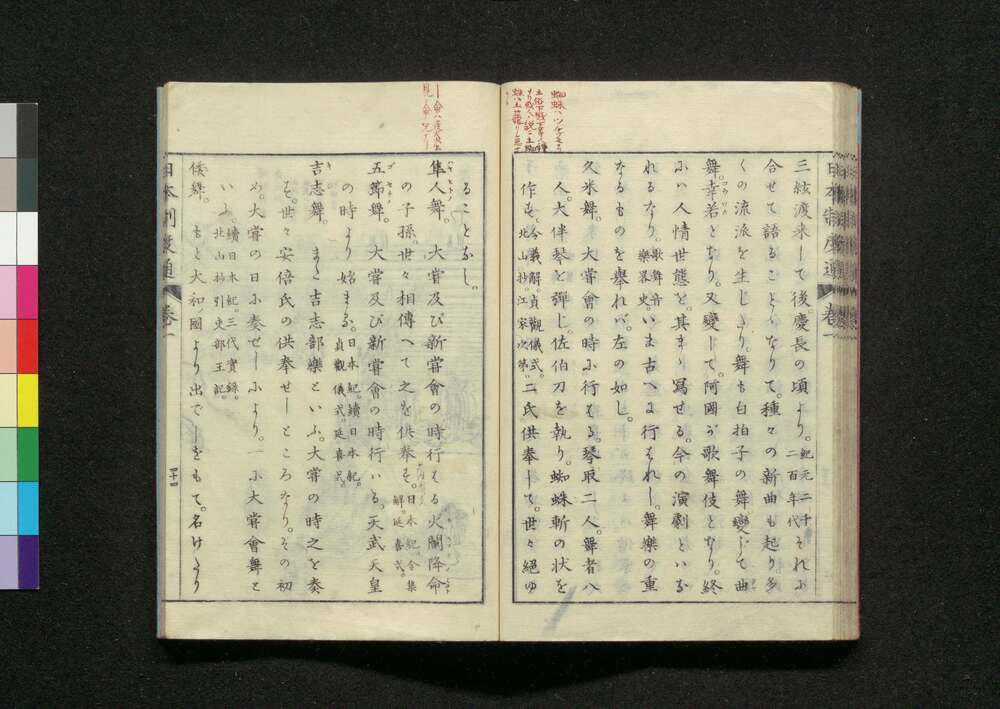 三絃渡来して後慶長の頃より。紀元二千二百年代それに
合せて語ることゝなりて。種々の新曲も起り多
くの流派を生じたり。舞も白拍子の舞變じて曲
舞。幸若となり。又變して。阿國が歌舞伎となり。終
に人情世態を。其まゝ寫せる。今の演劇といふる
れるなり。歌舞音樂畧史。いま古へに行はれし。舞樂の重
なるものを擧れバ。左の如し。
久米舞。大嘗會の時に行はる琴取二人。舞者八
人。大伴琴を彈じ。佐伯刀を執り。蜘蛛斬の状を
作す。令義解。貞觀儀式。北山抄。江家次第。二氏供奉して。世々絕ゆ
ることなし。
隼人舞。大嘗及び新嘗會の時行はる火闌降命
の子孫。世々相傳へて之を供奉す。日本紀。令集解。延喜式。
五節舞。大嘗及び新嘗會の時行いる。天武天皇
の時より始まる。日本紀。續日本紀。貞觀儀式。延喜式。
吉志舞。また吉志部樂といふ。大嘗の時之を奏
す。世々安倍氏の供奉せしところなり。その初
め。大嘗の日に奏せしより。一に大嘗會舞と
いふ。續日本紀。三代實錄。北山抄引吏部王記。
倭舞。もと大和ノ國より出でしをもて。名けたり
日本制度通 卷一
四十四